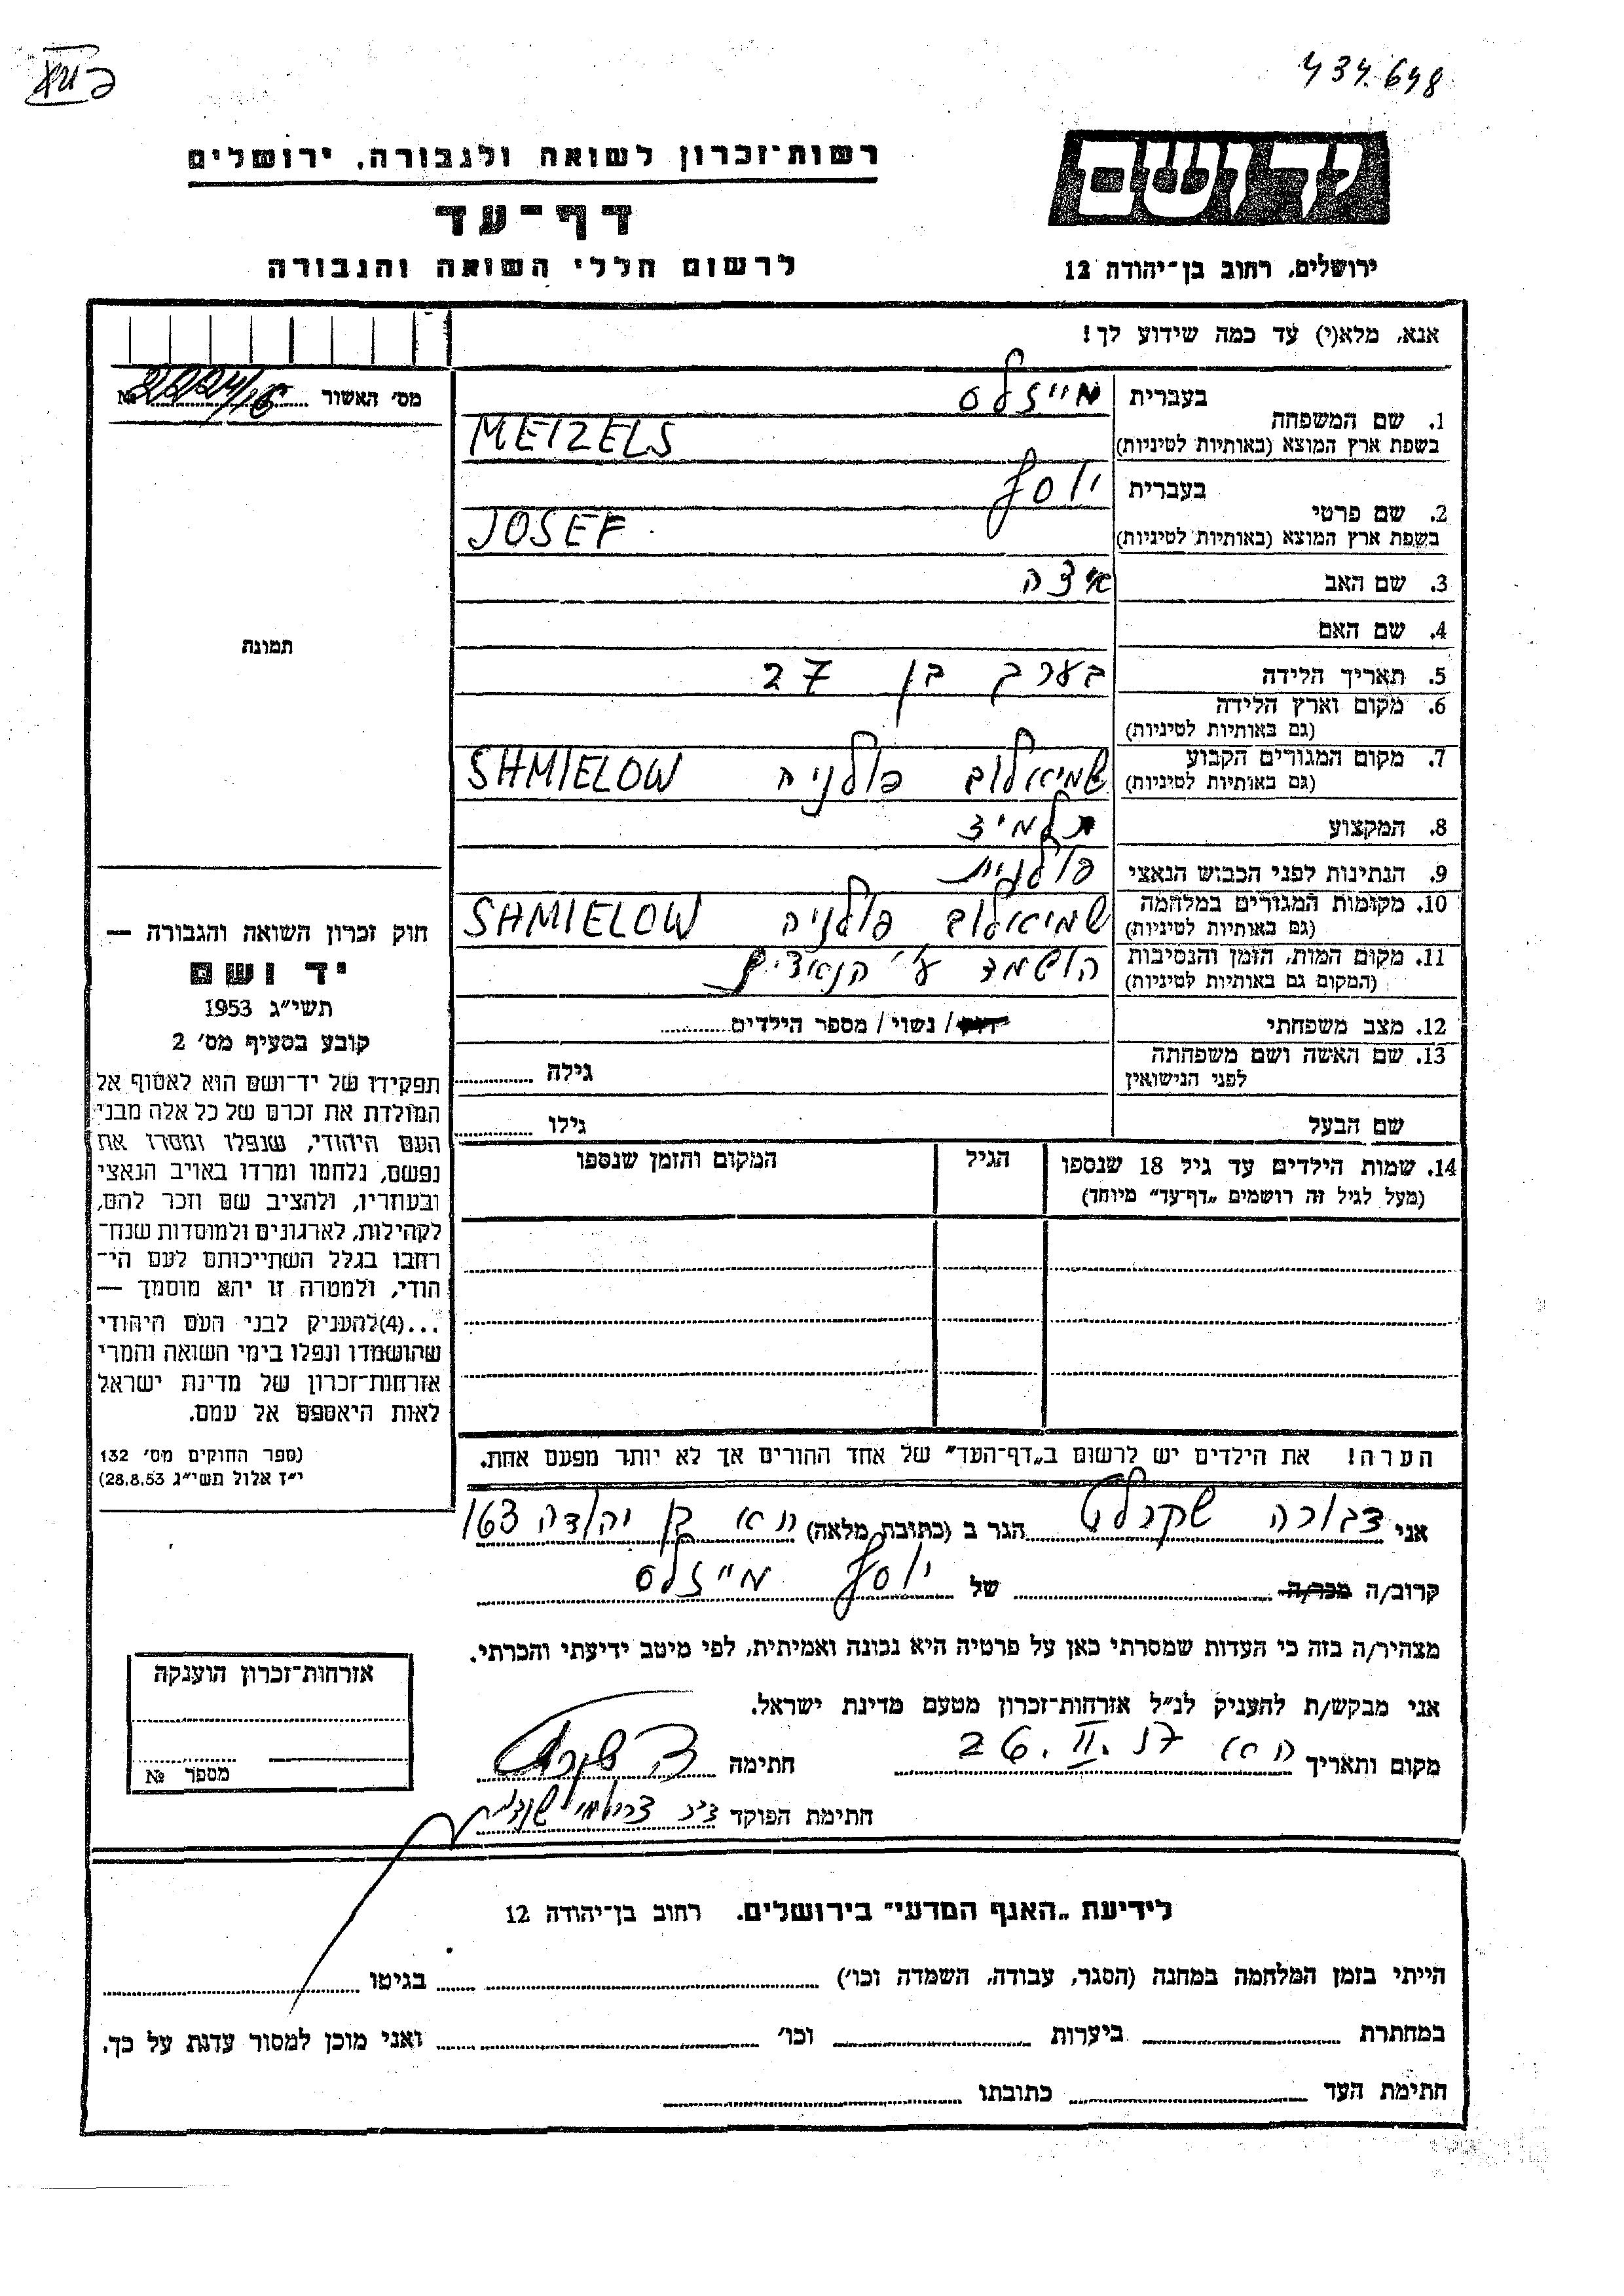 434.648
רשות־זכרון לשואה ולגבורה, ירושלים
יד ושם
דף־עד
לרשום חללי השואה והגבורה
ירושלים, רחוב בן־יהודה 12
אנא, מלא(י) עד כמה שידוע לך!
מס׳ האשור №
1. שם המשפחה
בעברית מייזלס
בשפת ארץ המוצא (באותיות לטיניות) MEIZELS
2. שם פרטי
בעברית יוסף
בשפת ארץ המוצא (באותיות לטיניות) JOSEF
3. שם האב איצה
4. שם האם
5. תאריך הלידה בערך בן 27
6. מקום וארץ הלידה
(גם באותיות לטיניות)
7. מקום המגורים הקבוע שמיאלוב פולניה SHMIELOW
(גם באותיות לטיניות)
8. המקצוע תלמיד
9. הנתינות לפני הכבוש הנאצי פולנית
10. מקומות המגורים במלחמה שמיאלוב פולניה SHMIELOW
(גם באותיות לטיניות)
11. מקום המות, הזמן והנסיבות הושמד ע״י הנאצים
(המקום גם באותיות לטיניות)
12. מצב משפחתי רווק / נשוי / מספר הילדים
13. שם האשה ושם משפחתה
לפני הנישואין גילה
שם הבעל גילו
14. שמות הילדים עד גיל 18 שנספו הגיל המקום והזמן שנספו
(מעל לגיל זה רושמים „דף־עד״ מיוחד)
הערה! את הילדים יש לרשום ב„דף־העד״ של אחד ההורים אך לא יותר מפעם אחת.
תמונה
חוק זכרון השואה והגבורה —
יד ושם
תשי״ג 1953
קובע בסעיף מס׳ 2
תפקידו של יד־ושם הוא לאסוף אל
המולדת את זכרם של כל אלה מבני
העם היהודי, שנפלו ומסרו את
נפשם, נלחמו ומרדו באויב הנאצי
ובעוזריו, ולהציב שם וזכר להם,
לקהילות, לארגונים ולמוסדות שנח־
רבו בגלל השתייכותם לעם הי־
הודי, ולמטרה זו יהא מוסמך —
...(4) להעניק לבני העם היהודי
שהושמדו ונפלו בימי השואה והמרי
אזרחות־זכרון של מדינת ישראל
לאות היאספם אל עמם.
(ספר החוקים מס׳ 132
י״ז אלול תשי״ג 28.8.53)
אני דבורה שקרלט הגר ב (כתובת מלאה) ת״א בן יהודה 163
קרוב/ה מכר/ה של יוסף מייזלס
מצהיר/ה בזה כי העדות שמסרתי כאן על פרטיה היא נכונה ואמיתית, לפי מיטב ידיעתי והכרתי.
אני מבקש/ת להעניק לנ״ל אזרחות־זכרון מטעם מדינת ישראל.
מקום ותאריך ת״א 57 .II .26 חתימה
חתימת הפוקד
אזרחות־זכרון הוענקה
מספר №
לידיעת „האגף המדעי״ בירושלים, רחוב בן־יהודה 12
הייתי בזמן המלחמה במחנה (הסגר, עבודה, השמדה וכו׳) בגיטו
במחתרת ביערות וכו׳ ואני מוכן למסור עדות על כך.
חתימת העד כתובתו